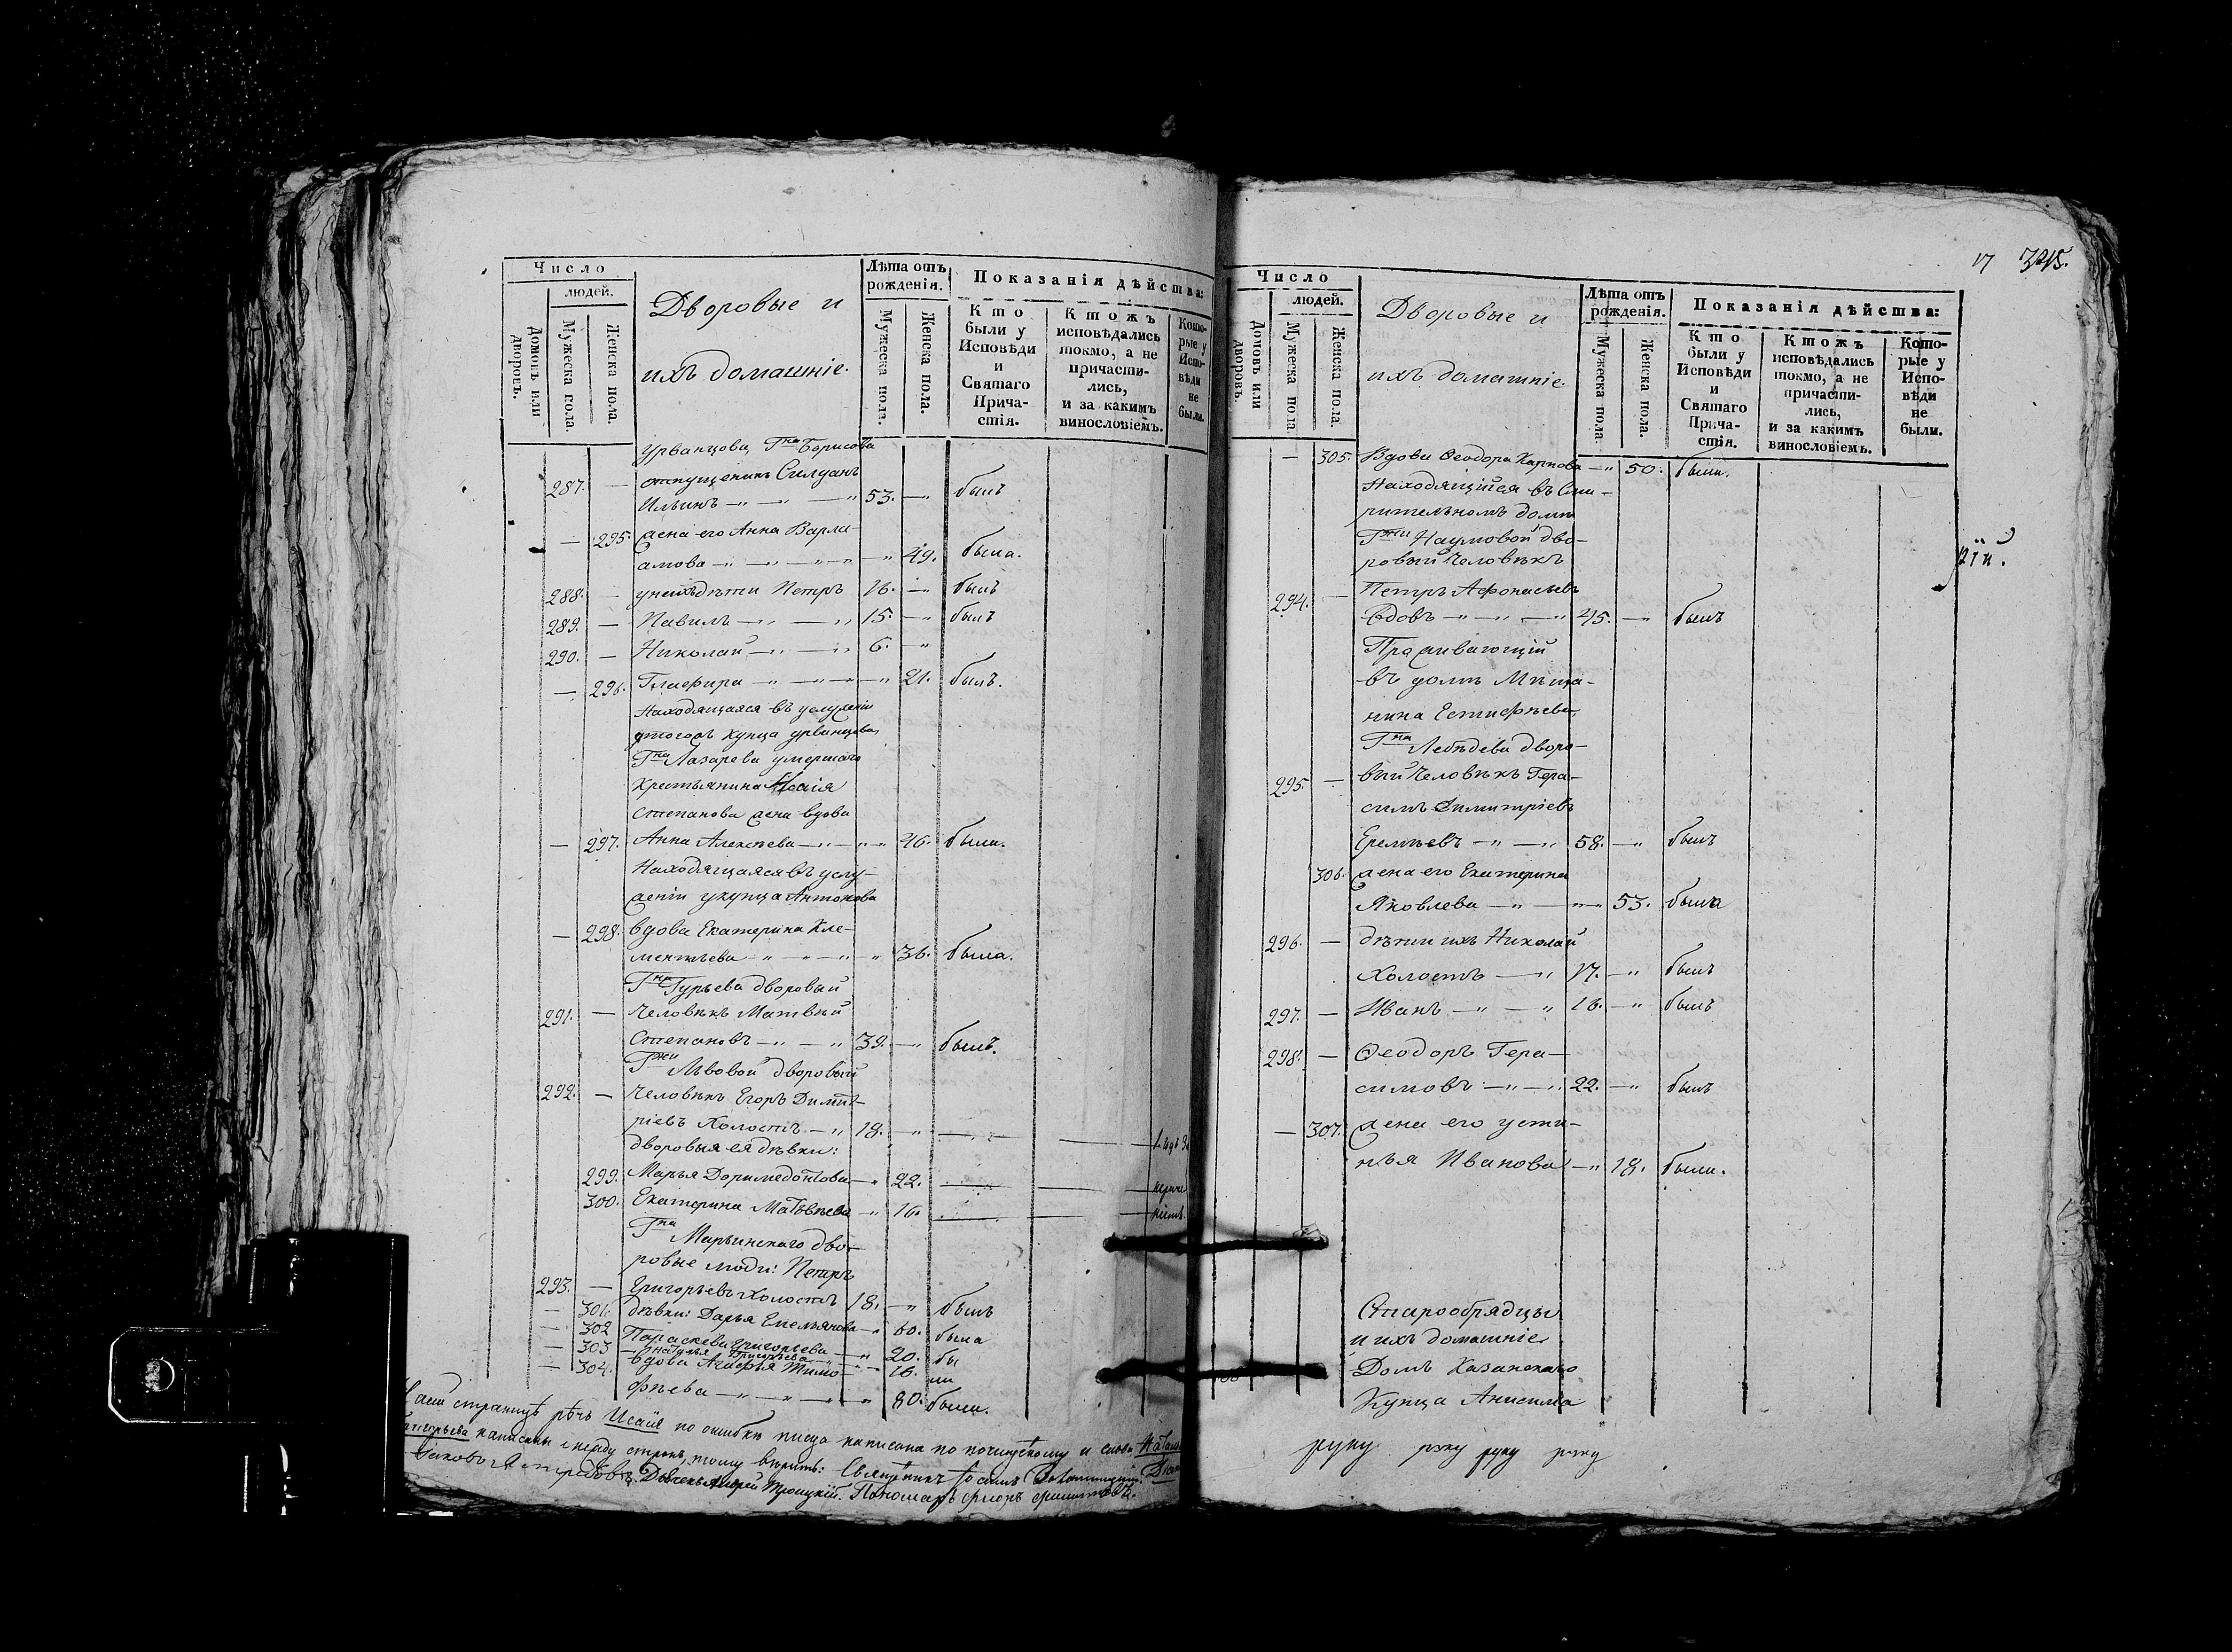 Число
людей.
Домовъ или дворовъ.
Мужеска пола.
Женска пола.
Дворовые и
ихъ домашніе.
Лѣта отъ рожденія.
Мужеска пола.
Женска пола.
Показанія дѣйства:
Кто были у Исповѣди и Святаго Причастія.
Ктожъ исповѣдались токмо, а не причастились, и за какимъ винословіемъ.
Которые у Исповѣди не были.
Урванцова, Гна Борисова
287. — отпущеникъ Силуанъ
Ильинъ 53. — былъ
— 295. жена его Анна Варла-
амова — 49. была.
288. — у нихъ дѣти Петръ 16. — былъ
289. — Павилъ 15. — былъ
290. — Николай 6. —
— 296. Глафира — 21. былъ.
Находящаяся въ услуженіи
у тогожъ купца Урванцова,
Гна Лазарева умершаго
крестьянина Исаія
Степанова жена вдова
— 297. Анна Алексѣева — 46. была.
Находящаяся въ услу-
женіи у купца Антонова
— 298. вдова Екатерина Кле-
ментьева — 36. была.
Гна Гурьева дворовый
291. — Человѣкъ Матвѣй
Степановъ 39. — былъ.
Гжи Львовой дворовый
292. — Человѣкъ Егоръ Димит-
ріевъ Холостъ 18. —
дворовыя ея дѣвки:
299. Марья Доримедонтова — 22.
300. Екатерина Матвѣева — 16.
Гна Марьинскаго дво-
ровые люди: Петръ
293. — Григорьевъ холостъ 18. — былъ
— 301. дѣвки: Дарья Емельянова — 60. была
— 302 Параскева Григорьева — 20. бы
— 303 Наталья Григорьева — 16. ли
— 304. вдова Агафья Тимо-
фѣева — 80. была.
страницѣ рѣчь Исаія по ошибкѣ писца написана по почищенному и слова Натал
Григорьева написаны между строкъ, тому вѣрить: Священникъ
Діаконъ Андрей Троицкій. Пономарь
17 325.
Число
людей.
Домовъ или дворовъ.
Мужеска пола.
Женска пола.
Дворовые и
ихъ домашніе.
Лѣта отъ рожденія.
Мужеска пола.
Женска пола.
Показанія дѣйства:
Кто были у Исповѣди и Святаго Причастія.
Ктожъ исповѣдались токмо, а не причастились, и за какимъ винословіемъ.
Которые у Исповѣди не были.
— 305. Вдова Феодора Карпова — 50. была.
Находящійся въ Сми-
рительномъ домѣ
Гжи Наумовой дво-
ровый Человѣкъ
294. — Петръ Афонасьевъ
Вдовъ 45. — былъ
Проживающій
въ домѣ Мѣща-
нина Естифѣева,
Гна Лебѣдева дворо-
295. — вый Человѣкъ Гера-
симъ Димитріевъ
Еремѣевъ 58. — былъ
306. жена его Екатерина
Яковлева — 53. была
296. — дѣти ихъ Николай
Холостъ 17. — былъ
297. — Иванъ 16. — былъ
298. — Феодоръ Гера-
симовъ 22. — былъ
— 307. жена его Усти-
нья Иванова — 18. была.
рій.
Старообрядцы
и ихъ домашніе.
Домъ Казанскаго
Купца Анисима
руку руку руку руку